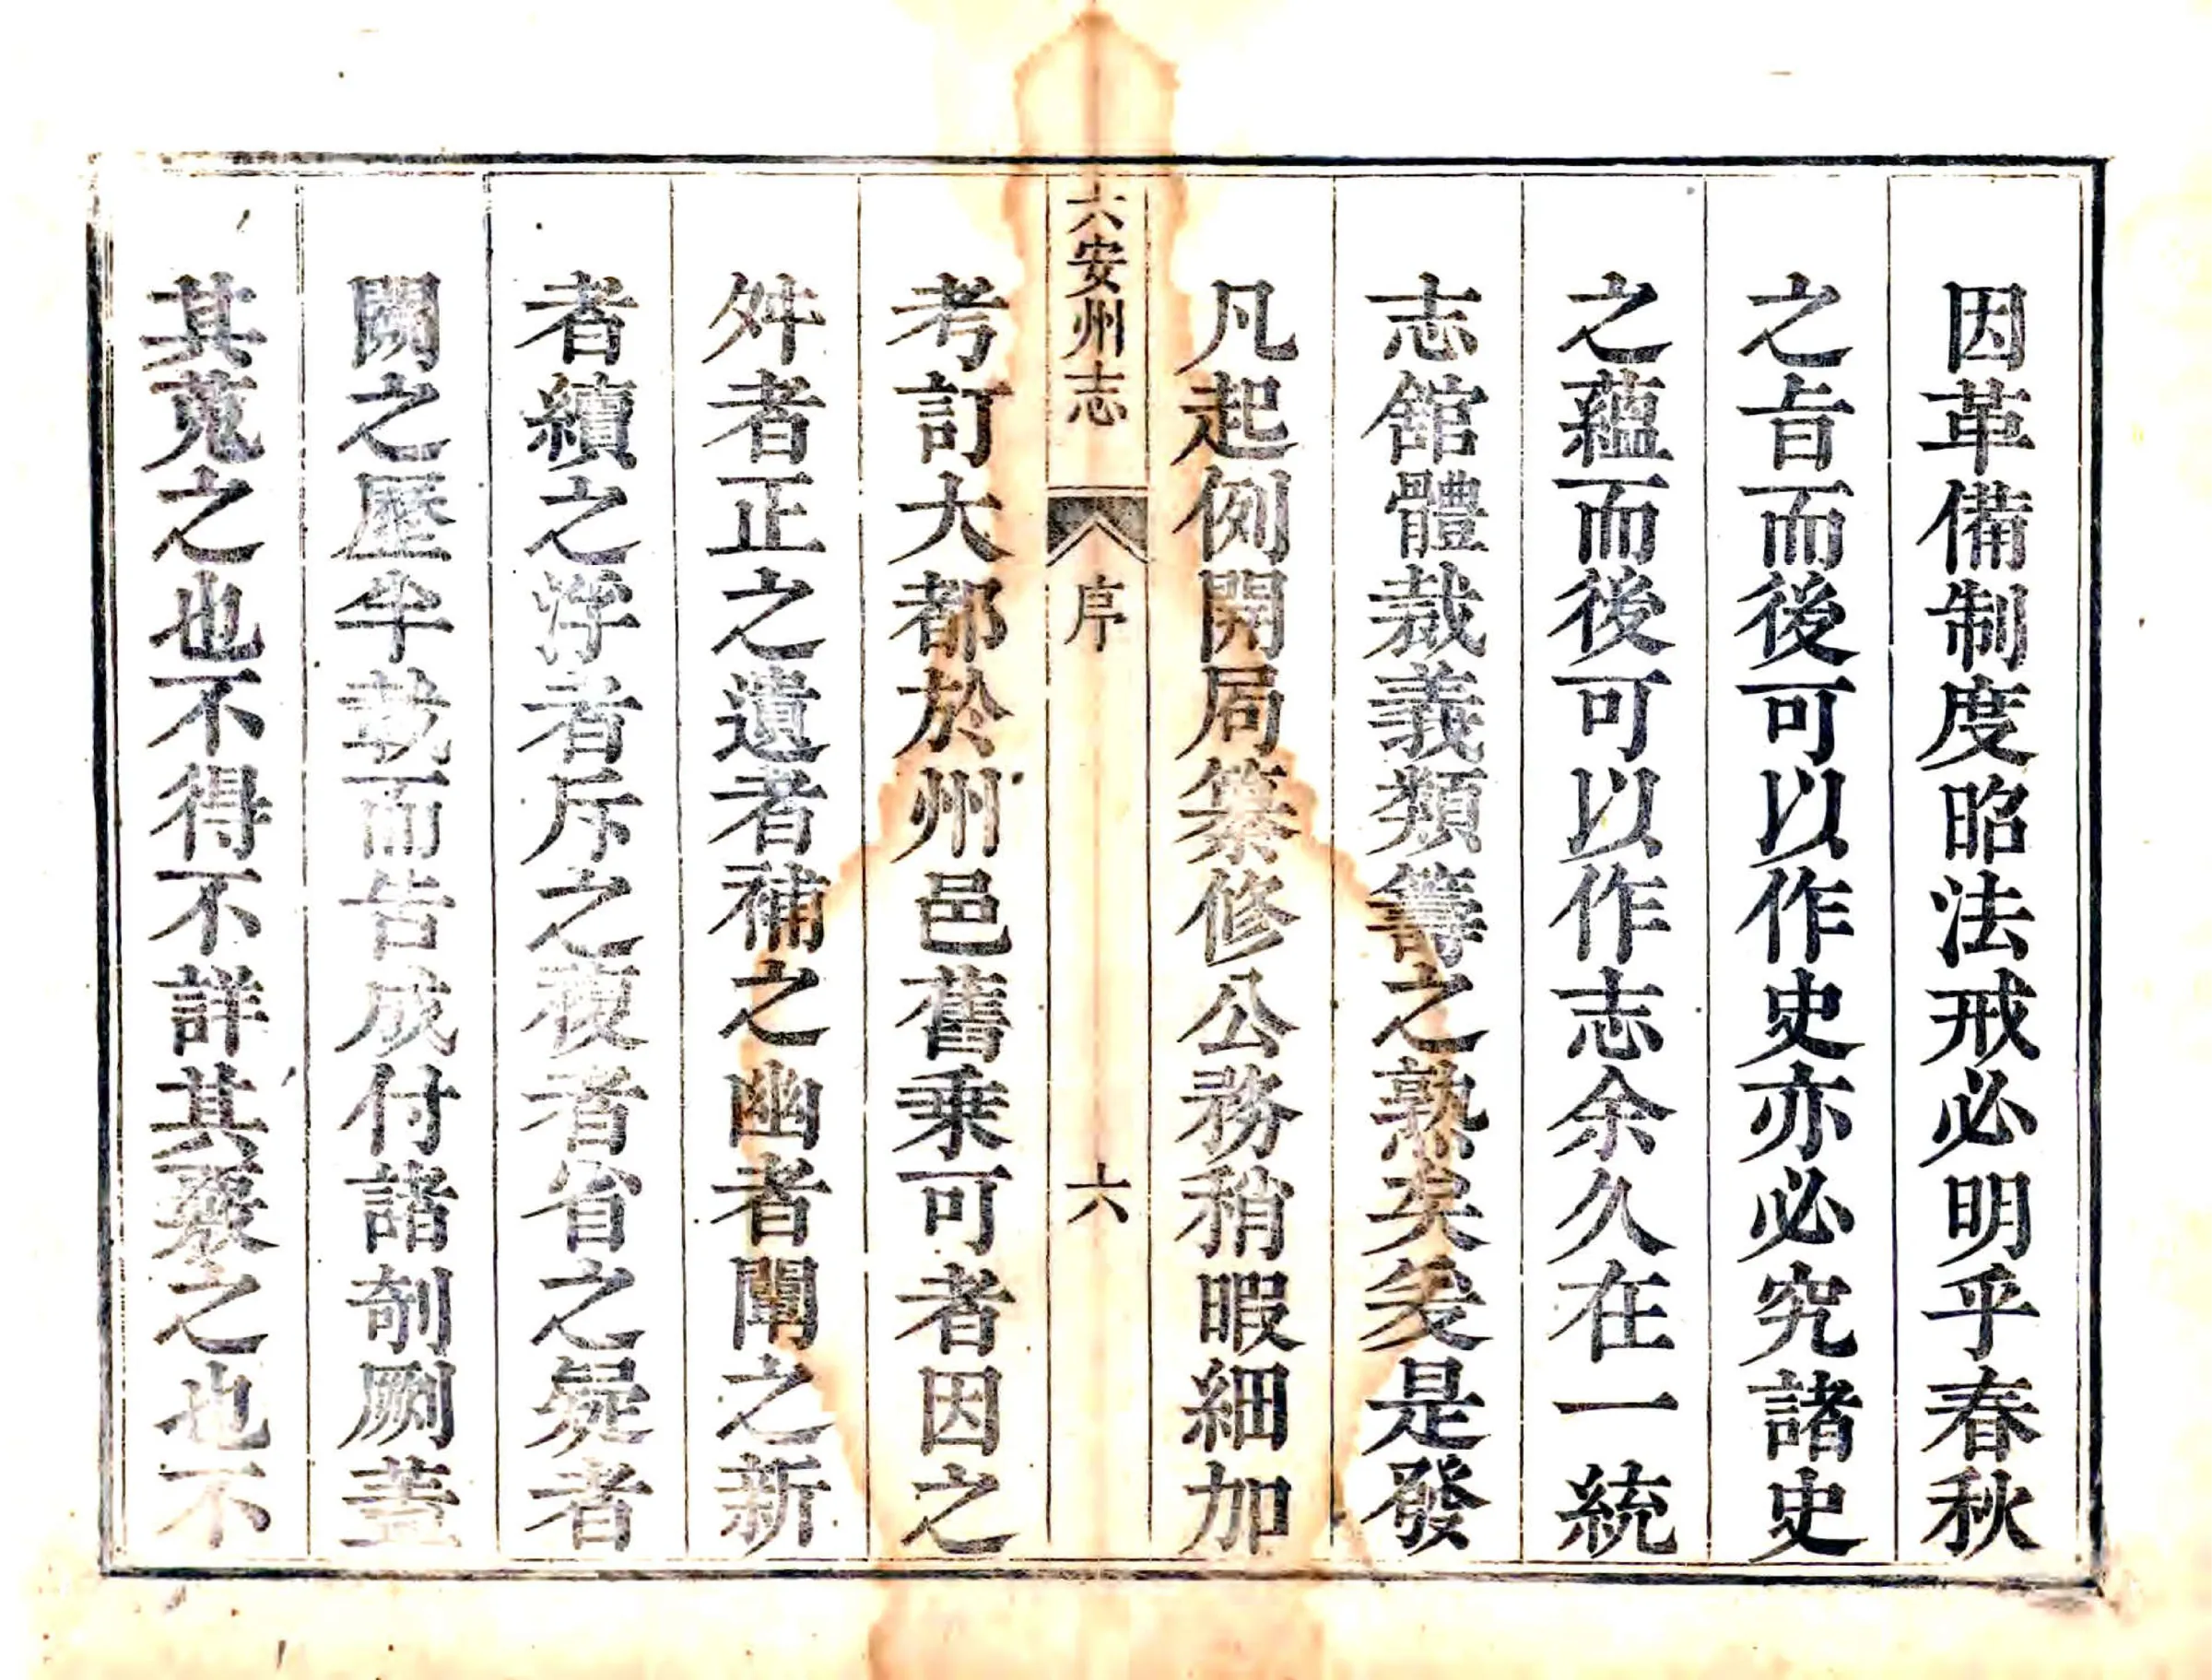 因革備制度昭法戒必明乎春秋
之旨而後可以作史亦必究諸史
之蘊而後可以作志余久在一統
志舘體裁義類籌之熟矣爰是發
凡起例開局纂修公務稍暇細加
六安州志
序
六
考訂大都於州邑舊乗可者因之
舛者正之遺者補之幽者闡之新
者續之浮者斥之複者省之疑者
闕之歷半載而告成付諸剞劂蓋
其蒐之也不得不詳其覈之也不